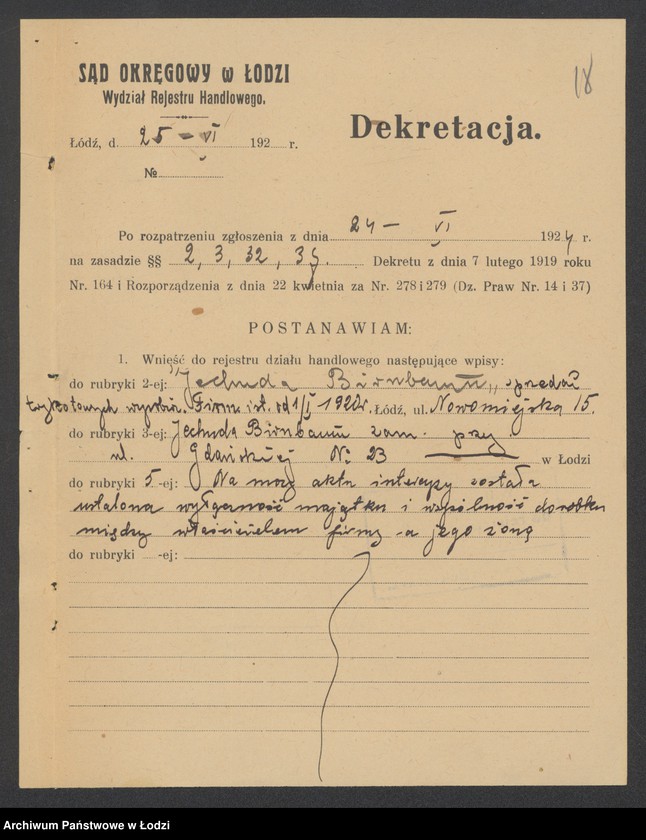 SĄD OKRĘGOWY w ŁODZI
Wydział Rejestru Handlowego.
18
Łódź, d. 25 – VI 192 r.
Dekretacja.
№
Po rozpatrzeniu zgłoszenia z dnia 24 – VI 1924 r.
na zasadzie §§ 2, 3, 32, 39. Dekretu z dnia 7 lutego 1919 roku
Nr. 164 i Rozporządzenia z dnia 22 kwietnia za Nr. 278 i 279 (Dz. Praw Nr. 14 i 37)
POSTANAWIAM:
1. Wnieść do rejestru działu handlowego następujące wpisy:
do rubryki 2-ej: "Jechuda Birnbaum" sprzedaż
trykotowych wyrobów. Firma ist. od 1/I 1922r. Łódź, ul. Nowomiejska 15.
do rubryki 3-ej: Jechuda Birnbaum zam. przy
ul. Gdańskiej № 23 w Łodzi
do rubryki 5-ej: Na mocy aktu intercyzy została
ustalona wyłączność majątku i wspólność dorobku
między właścicielem firmy a jego żoną
do rubryki -ej:
Archiwum Państwowe w Łodzi